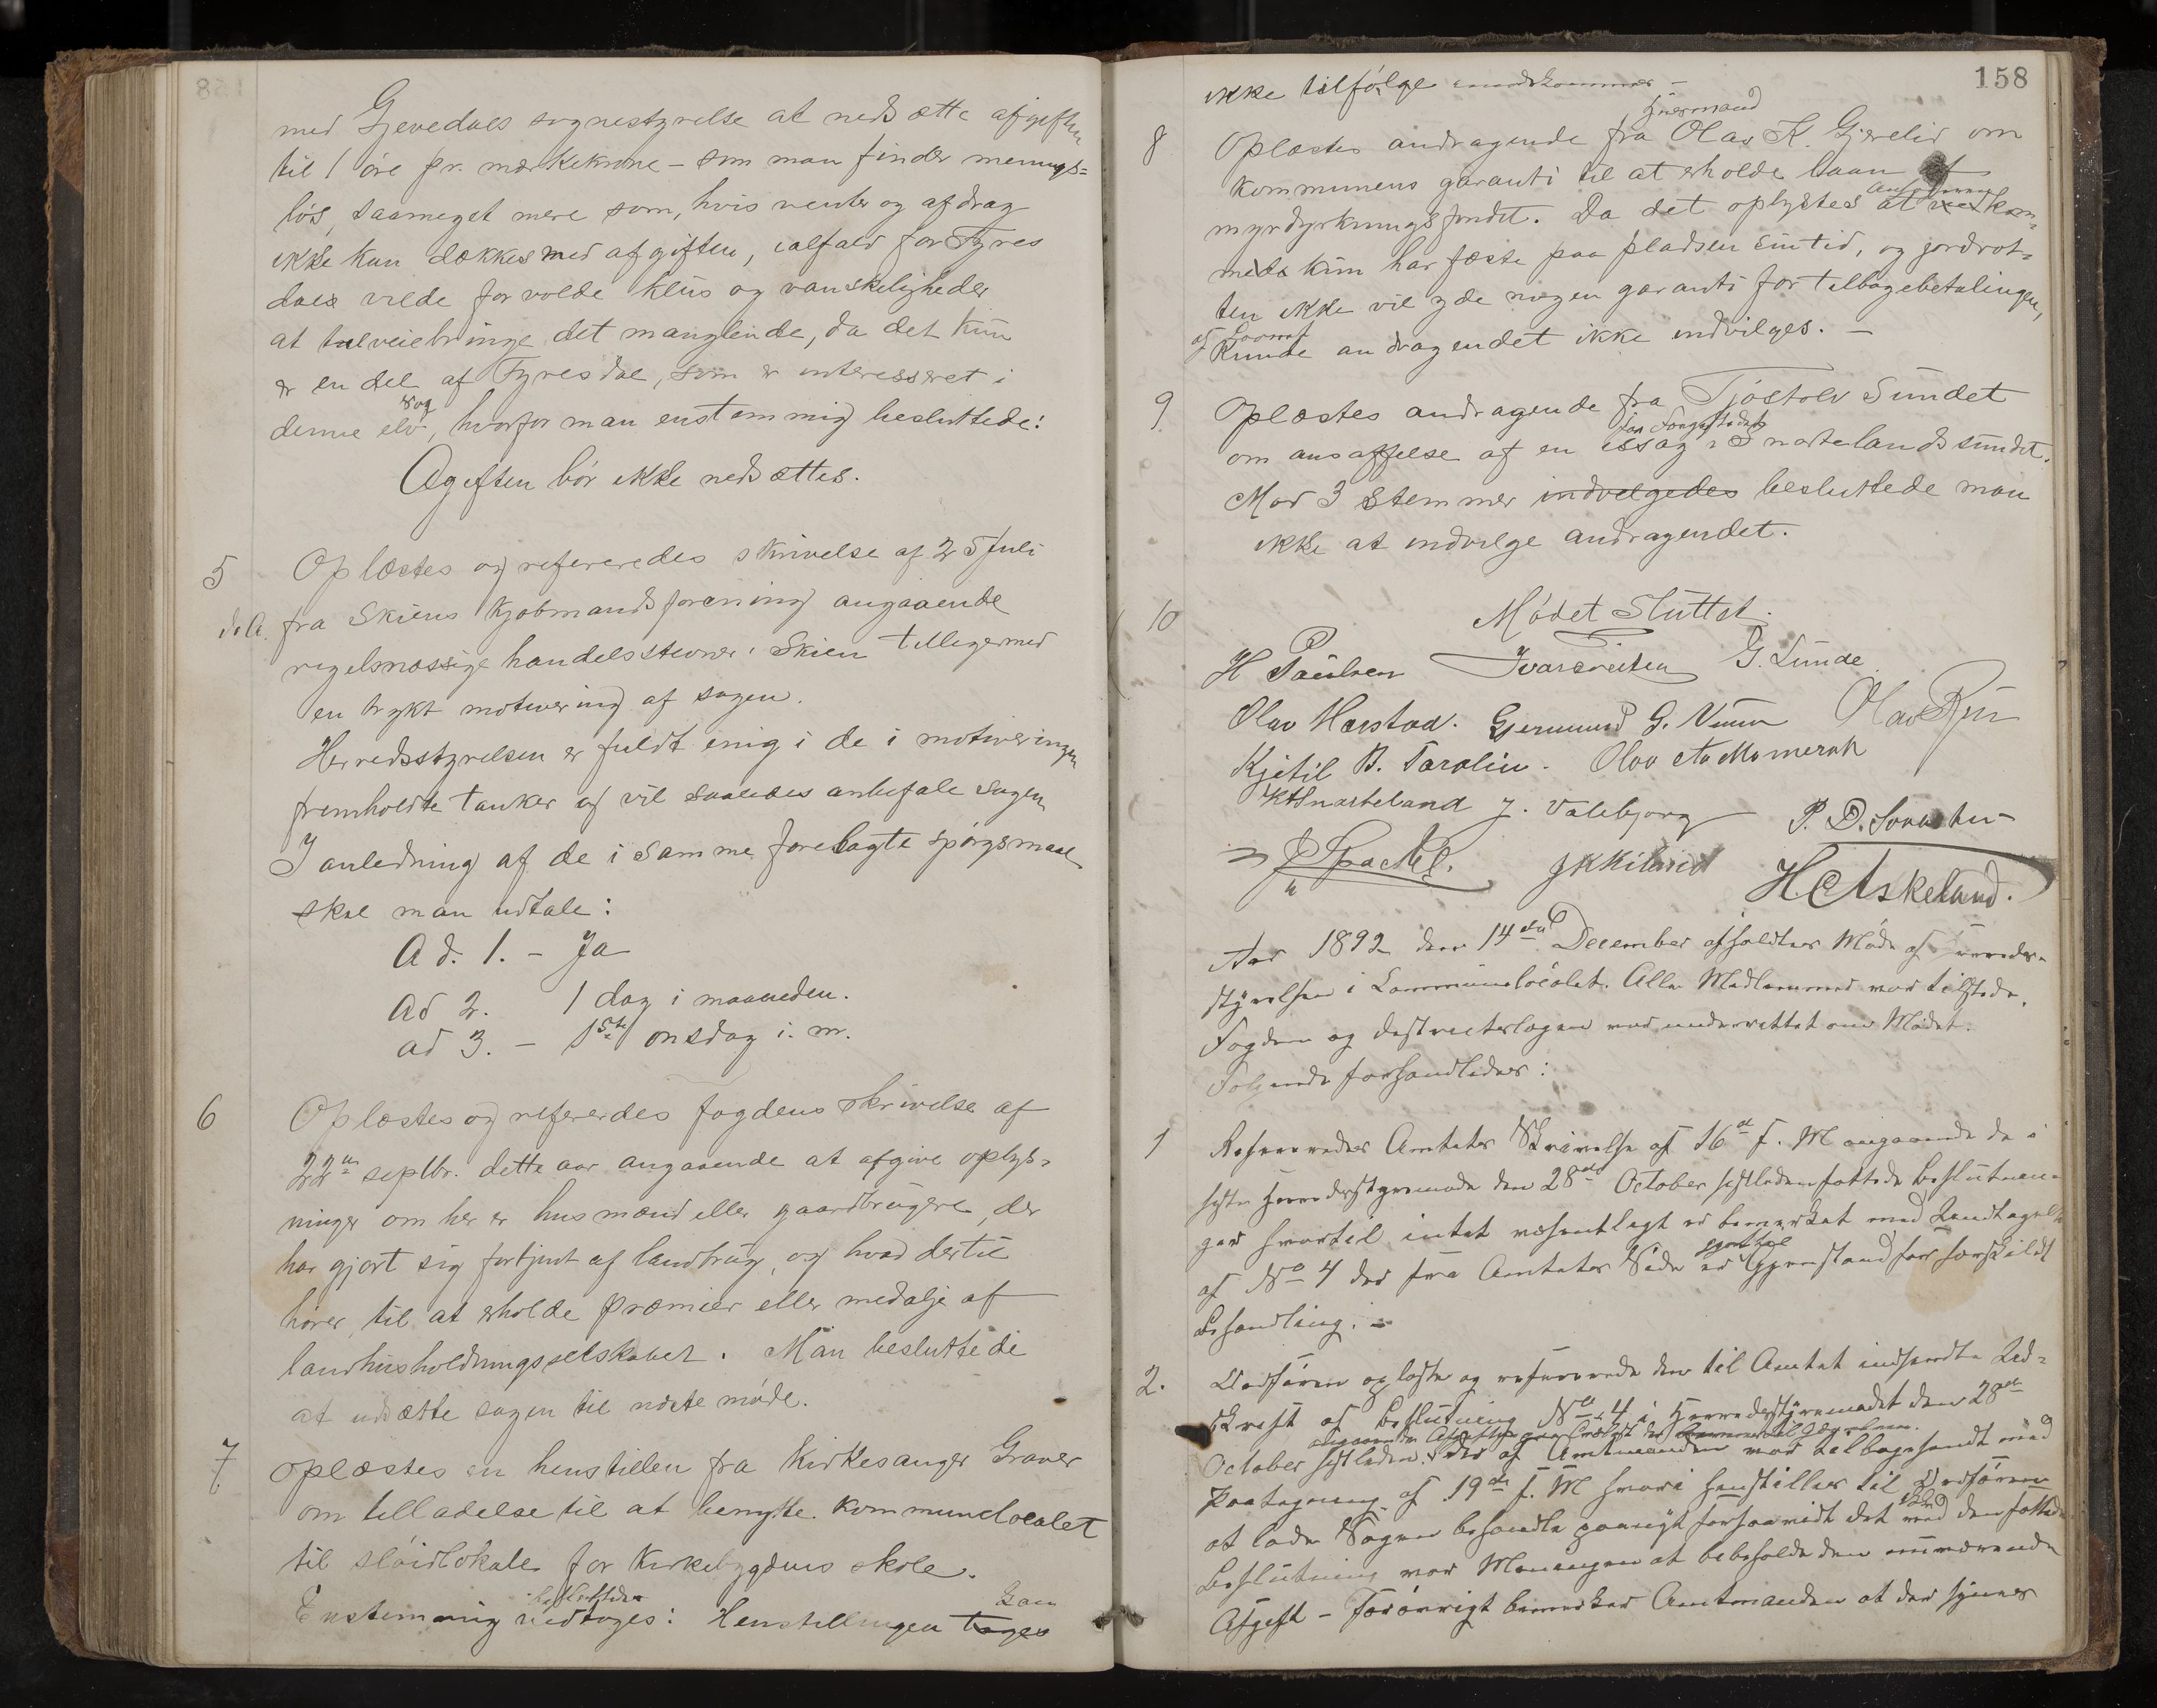 med Gjevedals sognestyrelse at nedsætte afgiften
til 1 öre pr. mærkekrone – som man finder menings=
lös, saameget mere som, hvis renter og afdrag
ikke kan dækkes med afgiften, ialfald for Tyres
dals vilde forvolde klus og vanskeligheder
at tilveiebringe det manglende, da det kun
er en del af Tyresdal, som er interesseret i
denne elv, hvorfor man enstemmig besluttede:
Agiften bör ikke nedsættes.
5 Oplæstes og refereredes skrivelse af 25 Juli
fra Skiens Kjøbmandsforening angaaende
regelmæssige handelsstevner i Skien tilligemed
en trykt motivering af sagen.
Herredsstyrelsen er fuldt enig i de i motiveringen
fremholdte tanker og vil saaledes anbefale sagen
I anledning af de i samme forelagte spörgsmaal
skal man udtale:
Ad. 1. – Ja
Ad 2. 1 dag i maaneden.
ad 3. – 1ste onsdag i. m.
6 Oplæstes og refereredes fogdens skrivelse af
22de septbr. dette aar angaaende at afgive oplys=
ninger om her er husmænd eller gaardbrugere, der
har gjort sig fortjent af landbrug, og hvad dertil
hörer, til at erholde præmier eller medalje af
landhusholdningsselskabet. Man besluttede
at udsætte sagen til næste möde.
7 Oplæstes en henstillen fra Kirkesanger Graver
om tilladelse til at benytte kommunelocalet
til slöidlokale for Kirkebygdens skole.
besluttedes Kan
Enstemmig vedtoges: Henstillingen tages
158
ikke tilfölge imødekommes –
Husmand
8 Oplæstes andragende fra Olav K. Gjerelid om
kommunens garanti til at erholde laan af
myrdyrkningsfondet. Da det oplystes at vedkom=
mede kun har fæste paa pladsen sin tid, og jordrot=
ten ikke vil yde nogen garanti for tilbagebetalingen
af Laanet
kunde andragendet ikke indvilges. –
9 Oplæstes andragende fra Tjöstolv Sundet
om ansaffelse af en issag i Snartelandssundet.
Mod 3 stemmer indvilgedes besluttede man
ikke at indvilge andragendet.
10 Mödet Sluttet.
H Paulsen G. Lunde
Olav Harstad. Gjermund G. Olav
Kjetil B. Taralien. Olav
KHSnarteland J. Valebjorg P. D.
HAskeland.
Aar 1892 den 14de December afholdtes Möde af Herreds=
styrelsen i Communelocalet. Alle Medlemmer var tilstede.
Fogden og Districtslægen var underrettet om Mödet.
Følgende forhandledes:
1 Refereredes Amtets Skrivelse af 16de f. M angaaende de i
sidste Herredsstyremöde den 28de October sistleden fattede Beslutnin=
ger hvortil intet væsentligt er bemerket med Undtagelse
af No 4 der fra Amtets Side er Gjenstand for særskildt
Behandling. –
2. Ordføren oplæste og refererede den til Amtet indsendte Ud=
skrift af Beslutning No 4 i Herredsstyremødet den 28de
October sistleden, der af Amtmanden var tilbagesendt med
Paategning af 19de f. M hvori henstilles til Ordføren
at lade Sagen behandle paanyt forsaavidt det ikke ved den fattede
Beslutning var Meningen at bibeholde den nuværende
Afgift – forövrigt bemerker Amtmanden at der synes